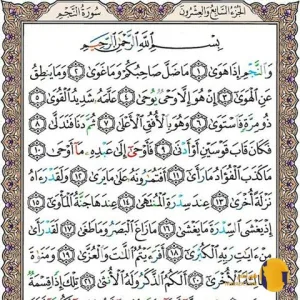 الجزء السابع والعشرون سورة النجم
بسم الله الرحمن الرحيم
والنجم إذا هوى ١ ما ضل صاحبكم وما غوى ٢ وما ينطق
عن الهوى ٣ إن هو إلا وحي يوحى ٤ علمه شديد القوى ٥
ذو مرة فاستوى ٦ وهو بالأفق الأعلى ٧ ثم دنا فتدلى ٨
فكان قاب قوسين أو أدنى ٩ فأوحى إلى عبده ما أوحى ١٠
ما كذب الفؤاد ما رأى ١١ أفتمرونه على ما يرى ١٢ ولقد رءاه
نزلة أخرى ١٣ عند سدرة المنتهى ١٤ عندها جنة المأوى ١٥
إذ يغشى السدرة ما يغشى ١٦ ما زاغ البصر وما طغى ١٧ لقد رأى
من ءايت ربه الكبرى ١٨ أفرءيتم اللت والعزى ١٩ ومنوة
الثالثة الأخرى ٢٠ ألكم الذكر وله الأنثى ٢١ تلك إذا قسمة